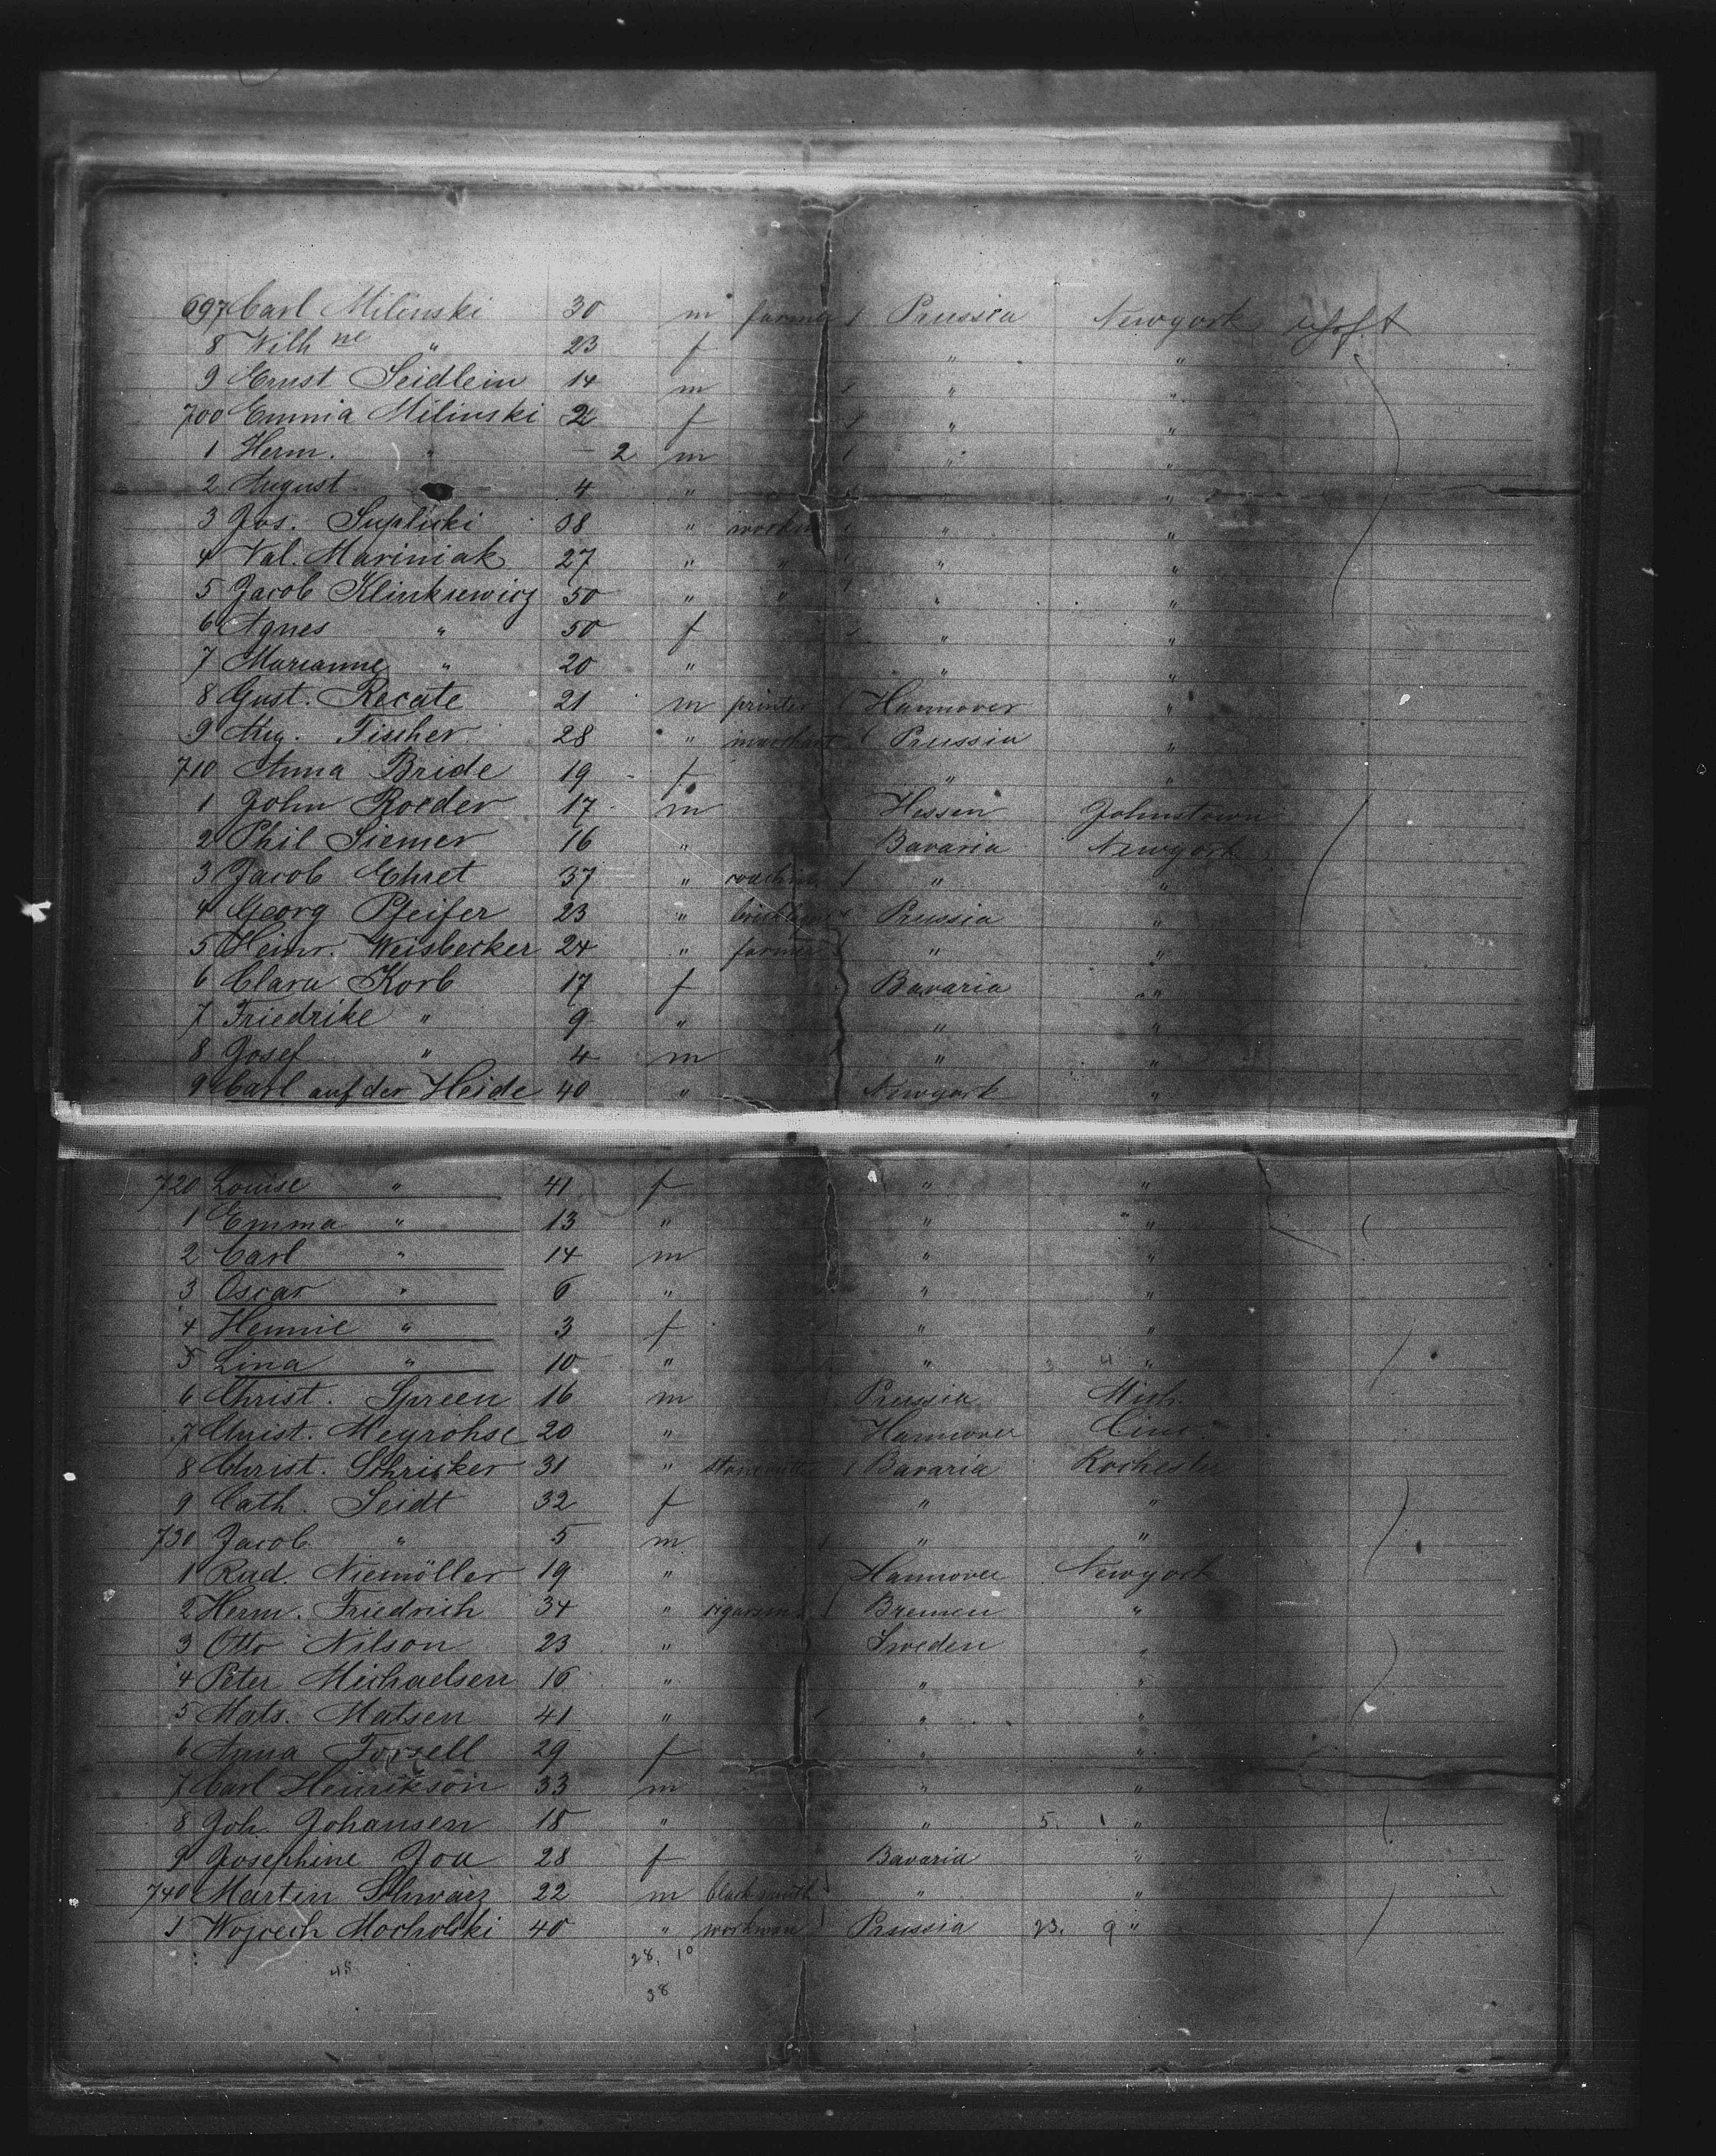 697 Carl Milinski 30 m farmer / Prussia Newyork
8 Wilh ne " 23 f " "
9 Ernst Seidlein 14 m " "
700 Emma Milinski 2 f " "
1 Herm. " - 2 m " "
2 August " 4 " " "
3 Jos. Suplicki 38 " workm " "
4 Val. Mariniak 27 " " " "
5 Jacob Klinkiewicz 50 " " " "
6 Agnes " 50 f " "
7 Marianne " 20 " " "
8 Gust. Recate 21 m printer Hannover "
9 Aug. Fischer 28 " merchant Prussia "
710 Anna Bride 19 f " "
1 John Roeder 17 m Hessen Johnstown
2 Phil Siemer 16 " Bavaria Newyork
3 Jacob Ehret 37 " / " "
4 Georg Pfeifer 23 " Prussia "
5 Heinr. Weisbecker 24 " farmer " "
6 Clara Korb 17 f Bavaria "
7 Friedrike " 9 " " "
8 Josef " 4 m " "
9 Carl auf der Heide 40 " Newyork "
720 Louise " 41 f " "
1 Emma " 13 " " "
2 Carl " 14 m " "
3 Oscar " 6 " " "
4 Hennie " 3 f " "
5 Lina " 10 " " 3 4 "
6 Christ. Spreen 16 m Prussia Mich.
7 Christ. Meyrohse 20 " Hannover Cinc
8 Christ. Schricker 31 " stonecutter / Bavaria Rochester
9 Cath. Seidt 32 f " "
730 Jacob " 5 m " "
1 Rud. Niemöller 19 " Hannover Newyork
2 Herm. Friedrich 34 " cigarsm / Bremen "
3 Otto Nilson 23 " Sweden "
4 Peter Michaelsen 16 " " "
5 Mats. Matsen 41 " " "
6 Anna Forsell 29 f " "
7 Carl Henrikson 33 m " "
8 Joh. Johansen 18 " " 5. 1 "
9 Josephine Joa 28 f Bavaria "
740 Martin Schwarz 22 m blacksmith " "
1 Wojcech Mocholski 40 " workman / Prussia 23. 9 "
48 28. 10
38